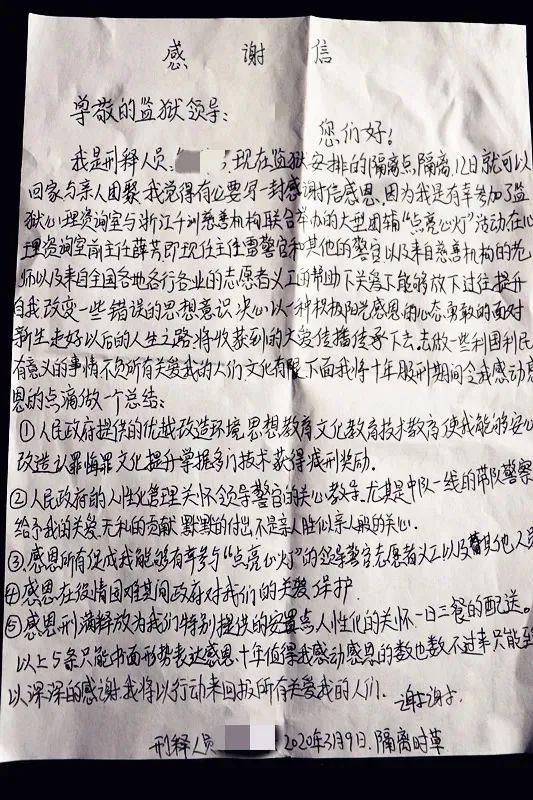 感谢信
尊敬的监狱领导：
您们好！
我是刑释人员：，现在监狱安排的隔离点，隔离，12日就可以
回家与亲人团聚，我觉得有必要写一封感谢信感恩，因为我是有幸参加了监
狱心理咨询室与浙江千训慈善机构联合举办的大型团辅“点亮心灯”活动在心
理咨询室前主任薛芳即现任主任雷警官和其他的警官以及来自慈善机构的老
师以及来自全国各地各行各业的志愿者义工的帮助下关爱下能够放下过往提升
自我改变一些错误的思想意识决心以一种积极阳光感恩的心态勇敢的面对
新生走好以后的人生之路，将收获到的大爱传播传承下去。去做一些利国利民
有意义的事情不负所有关爱我的人们文化有限下面我将十年服刑期间令我感动感
恩的点滴做一个总结：
①人民政府提供的优越改造环境，思想教育文化教育技术教育，使我能够安心
改造认罪悔罪文化提升掌握多门技术获得减刑奖励.
②人民政府的人性化管理关怀领导警官的关心教导，尤其是中队一线的带队警察
给予我的关爱，无私的贡献，默默的付出不是亲人胜似亲人般的关心.
③感恩所有促成我能够有幸参与“点亮心灯”的领导警官志愿者义工！以及其他人员
④感恩在疫情困难其间政府对我们的关爱保护.
⑤感恩刑满释放为我们特别提供的安置点，人性化的关怀.一日三餐的配送。
以上5条只能书面形势表达感恩，十年值得我感动感恩的数也数不过来只能至
以深深的感谢，我将以行动来回报所有关爱我的人们.
谢谢.
刑释人员 2020年3月9日.隔离时草